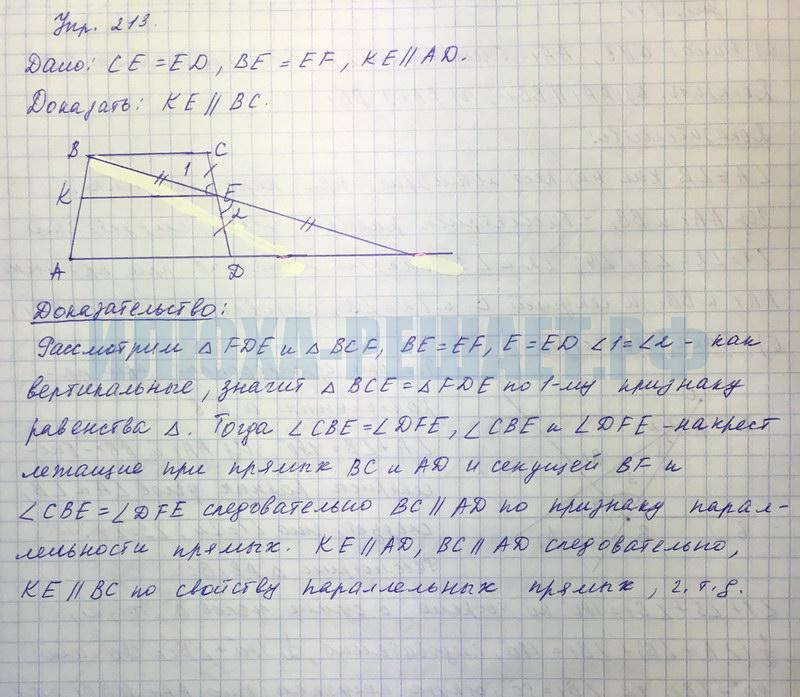 Упр. 213.
Дано: CE = ED, BE = EF, KE || AD.
Доказать: KE || BC.
B C
1
K E
2
A D
Доказательство:
ИЛЮХА-РЕШАЕТ.РФ
Рассмотрим △ FDE и △ BCE, BE = EF, E = ED ∠1 = ∠2 - как
вертикальные, значит △ BCE = △ FDE по 1-му признаку
равенства △. Тогда ∠CBE = ∠DFE, ∠CBE и ∠DFE - накрест
лежащие при прямых BC и AD и секущей BF и
∠CBE = ∠DFE следовательно BC || AD по признаку парал-
лельности прямых. KE || AD, BC || AD следовательно,
KE || BC по свойству параллельных прямых, ч. т. д.